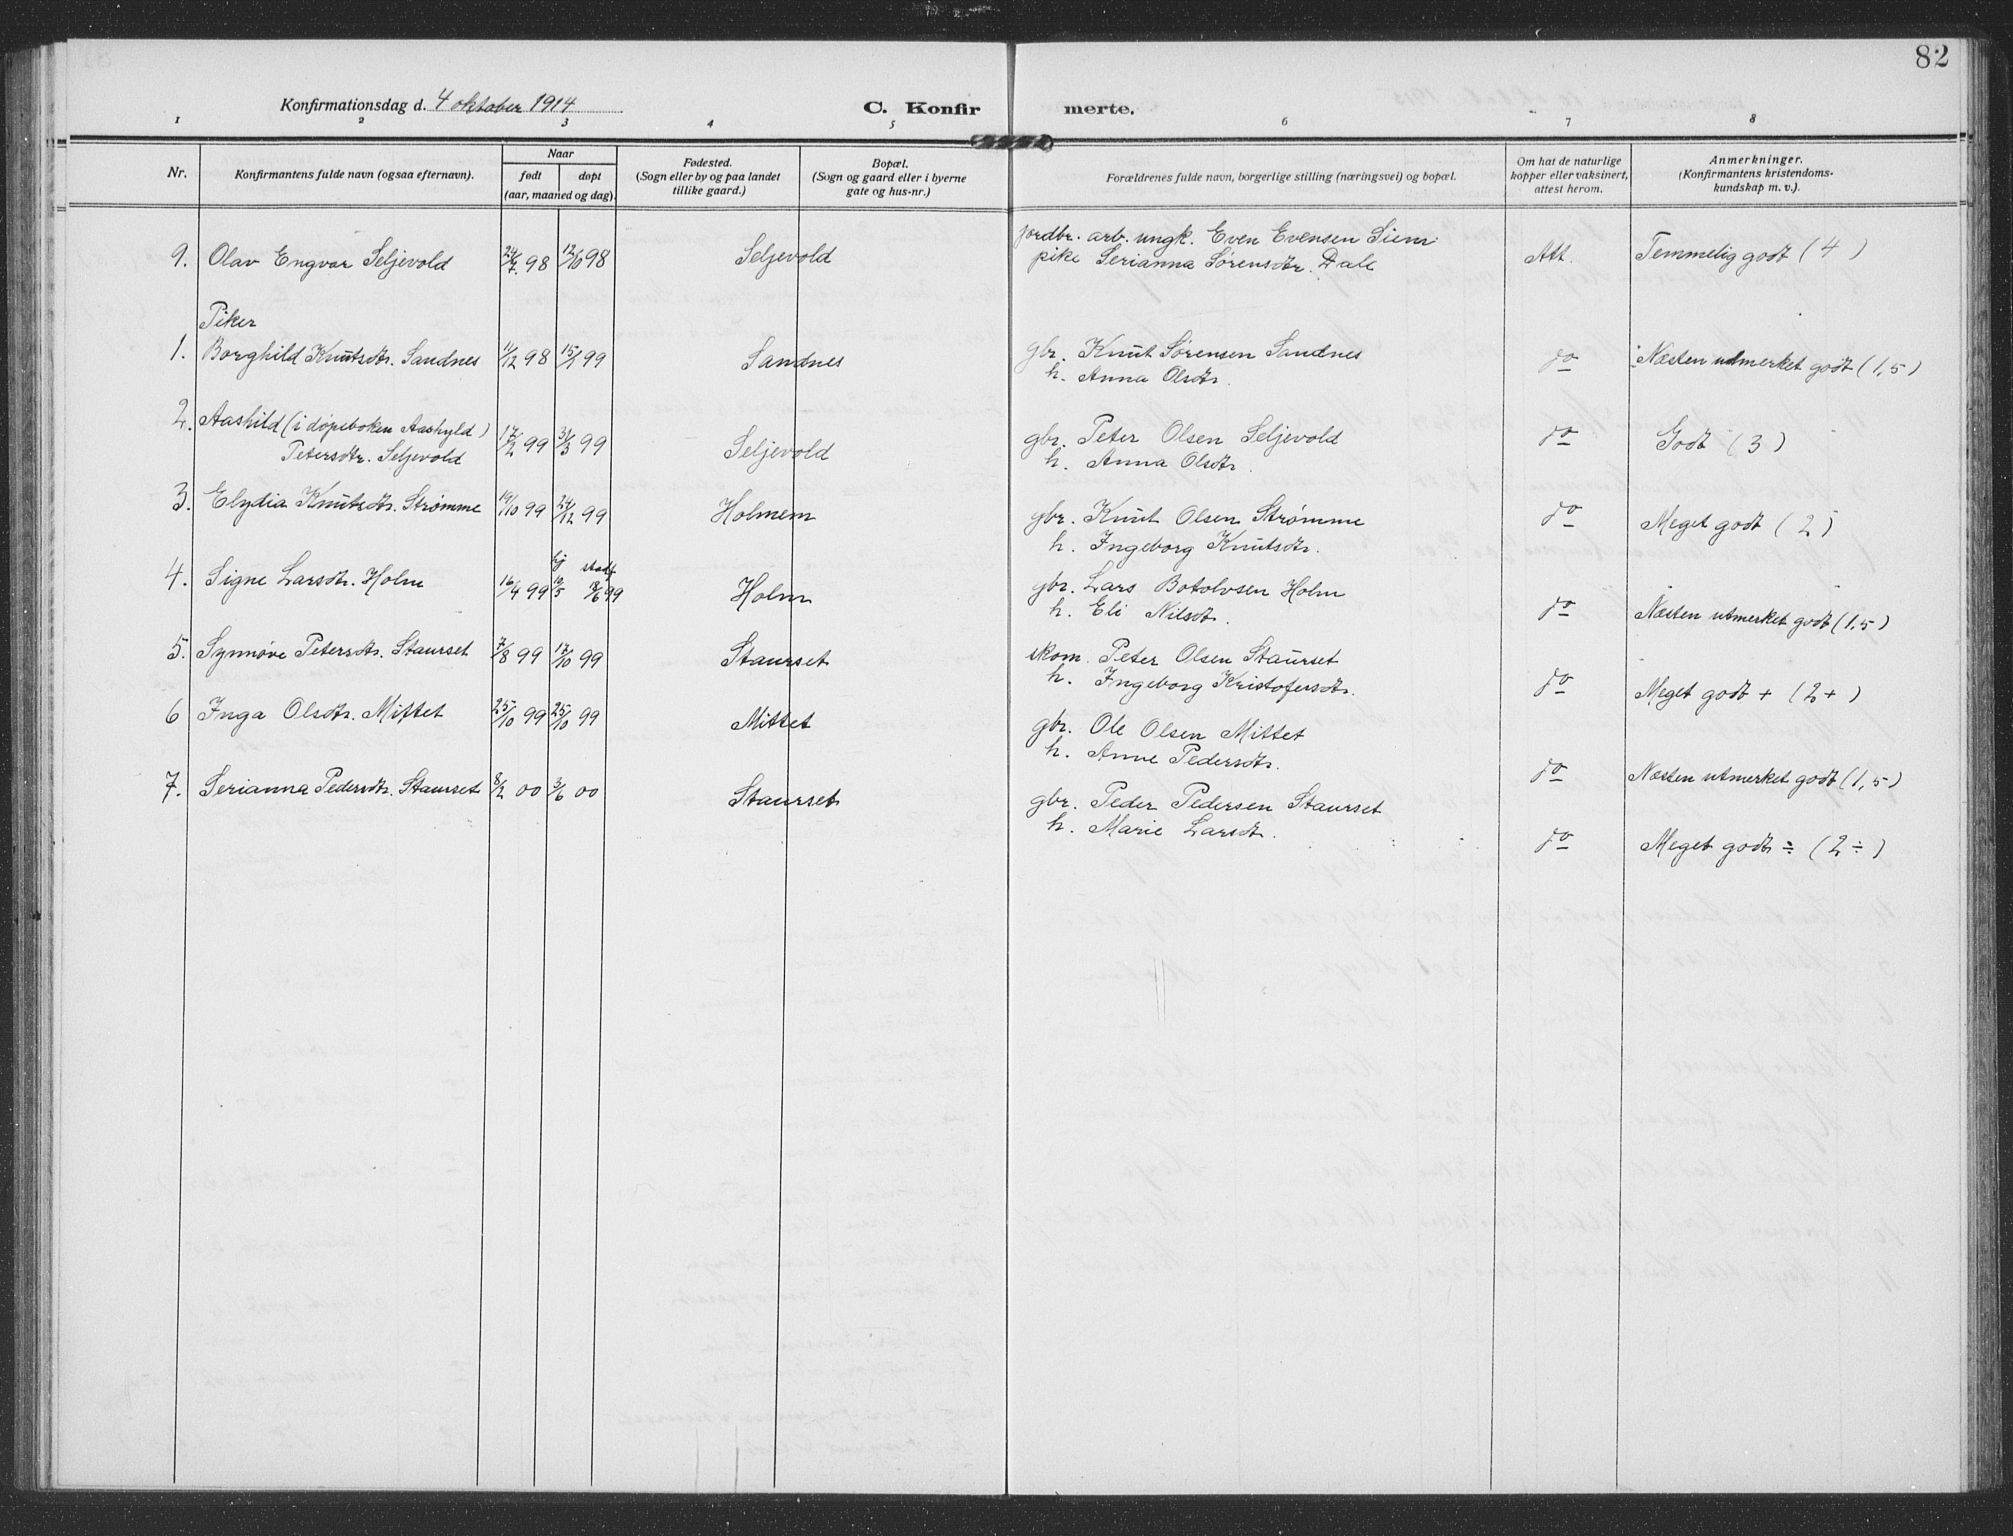 82
Konfirmationsdag d. 4 oktober 1914
C. Konfirmerte.
1 2 3 4 5 6 7 8
Nr.
Konfirmantens fulde navn (ogsaa efternavn).
Naar
født døpt
(aar, maaned og dag).
Fødested.
(Sogn eller by og paa landet
tillike gaard.)
Bopæl.
(Sogn og gaard eller i byerne
gate og hus-nr.)
Forældrenes fulde navn, borgerlige stilling (næringsvei) og bopæl.
Om hat de naturlige
kopper eller vaksinert,
attest herom.
Anmerkninger.
(Konfirmantens kristendoms-
kundskap m. v.).
9. Olav Engvar Seljevold 24/7 98 12/10 98 Seljevold jordbr. arb. ungk. Even Evensen Siem Att. Temmelig godt (4)
pike Serianna Sørensdtr. Dale
Piker
1. Borghild Knutsdtr. Sandnes 11/12 98 15/1 99 Sandnes gbr. Knut Sørensen Sandnes do Næsten utmerket godt (1,5)
h. Anna Olsdtr.
2. Aashild (i døpeboken Aashyld)
Petersdtr. Seljevold 17/2 99 31/3 99 Seljevold gbr. Peter Olsen Seljevold do Godt (3)
h. Anna Olsdtr.
3. Elydia Knutsdtr. Strømme 19/10 99 24/12 99 Holmem gbr. Knut Olsen Strømme do Meget godt (2)
h. Ingeborg Knutsdtr.
4. Signe Larsdtr. Holm 16/4 99 Holm gbr. Lars Botolvsen Holm do Næsten utmerket godt (1,5)
h. Eli Nilsdtr.
5. Synnøve Petersdtr. Staurset 7/8 99 17/10 99 Staurset skom. Peter Olsen Staurset do Meget godt + (2+)
h. Ingeborg Kristofersdtr.
6 Inga Olsdtr. Mittet 25/10 99 25/10 99 Mittet gbr. Ole Olsen Mittet do Næsten utmerket godt (1,5)
h. Anne Pedersdtr.
7. Serianna Pedersdtr. Staurset 8/2 00 3/6 00 Staurset gbr. Peder Pedersen Staurset do Meget godt ÷ (2÷)
h. Marie Larsdtr.